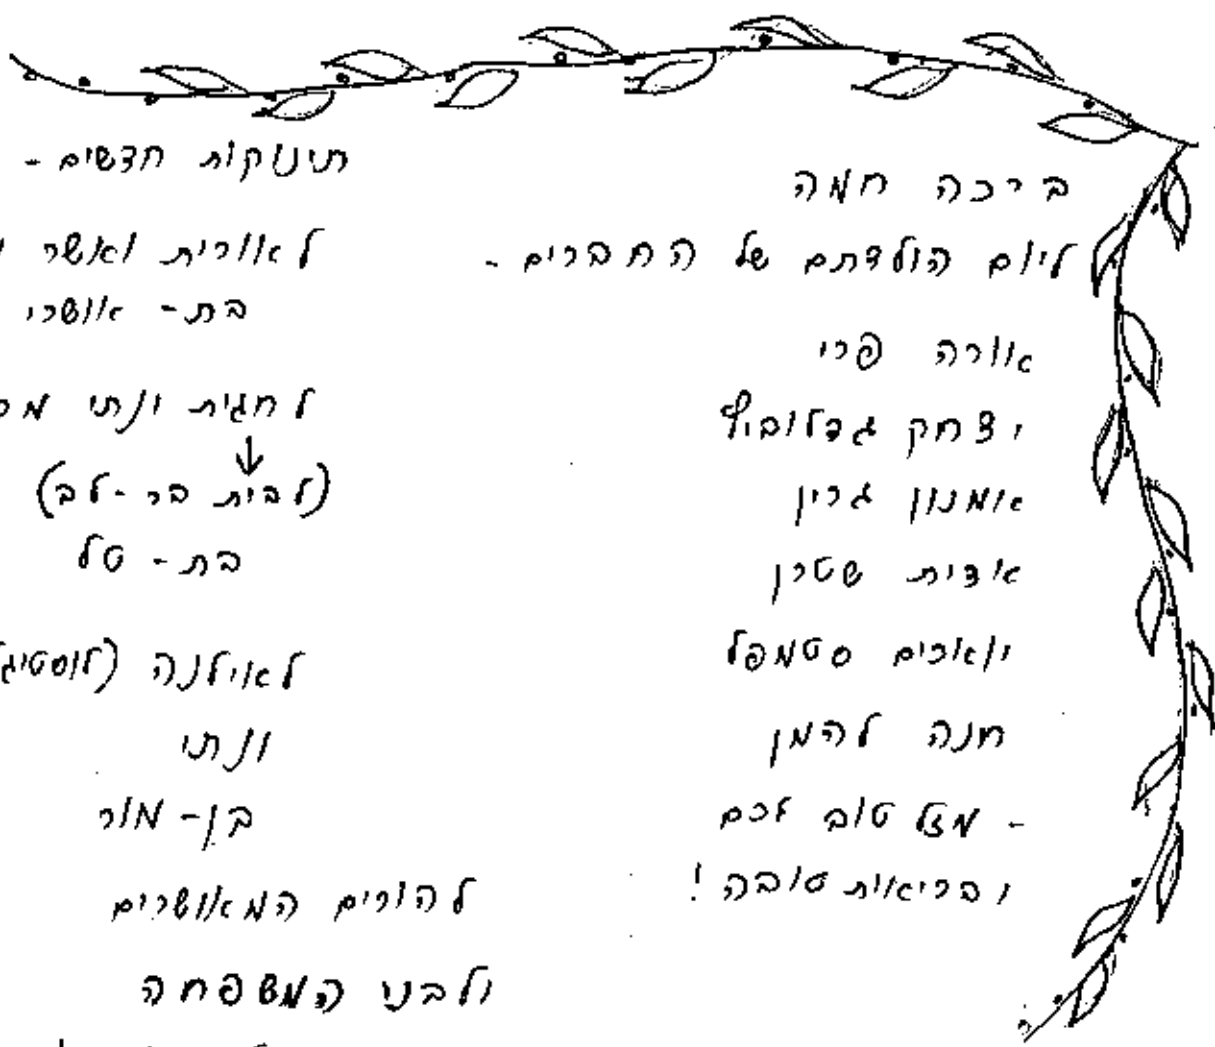 ברכה חמה
ליום הולדתם של החברים -
אורה פרי
יצחק גבלוביץ
אמנון גרין
אצית שטרן
יואכים סטמפל
חנה להמן
- מזל טוב לכם
ובריאות טובה!
תינוקות חדשים -
לאורית ואשר
בת - אושרי
לחגית ונתי
(לבית בר - לב)
בת - טל
לאילנה (לוסטיג
ונתי
בן - מור
להורים המאושרים
ולבני המשפחה